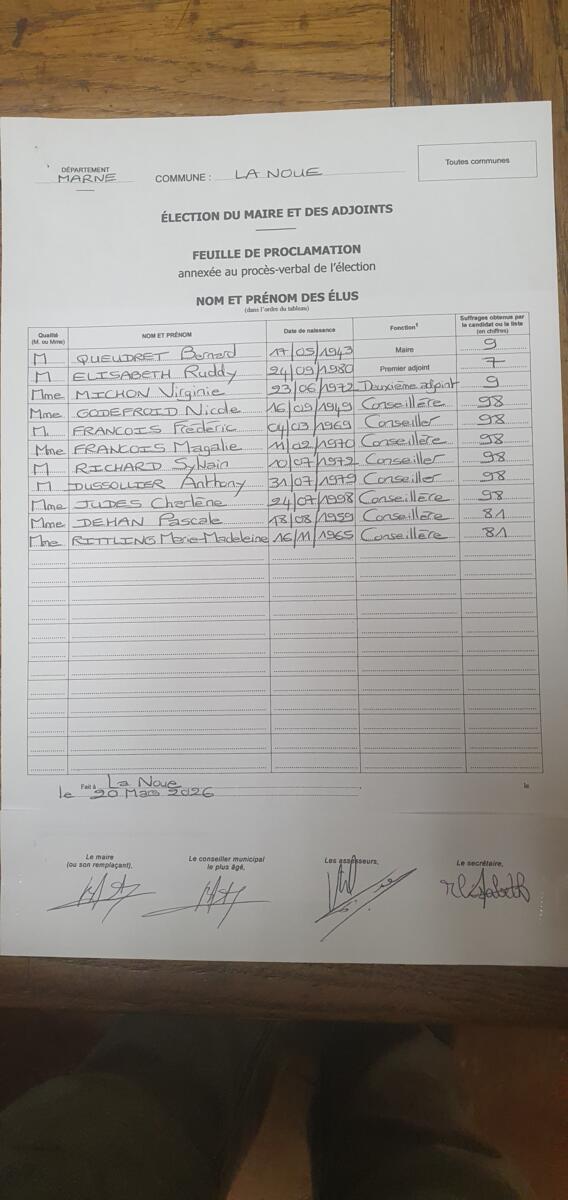 DÉPARTEMENT
MARNE
COMMUNE : LA NOUE
Toutes communes
ÉLECTION DU MAIRE ET DES ADJOINTS
FEUILLE DE PROCLAMATION
annexée au procès-verbal de l'élection
NOM ET PRÉNOM DES ÉLUS
(dans l'ordre du tableau)
Qualité (M. ou Mme) NOM ET PRÉNOM Date de naissance Fonction¹ Suffrages obtenus par le candidat ou la liste (en chiffres)
M QUEUDRET Bernard 17/05/1943 Maire 9
M ELISABETH Ruddy 24/09/1980 Premier adjoint 7
Mme MICHON Virginie 23/06/1972 Deuxième adjoint 9
Mme GODEFROID Nicole 16/09/1949 Conseillère 98
M. FRANCOIS Frédéric 04/03/1969 Conseiller 98
Mme FRANCOIS Magalie 11/02/1970 Conseillère 98
M RICHARD Sylvain 10/07/1972 Conseiller 98
M DUSSOLLIER Anthony 31/07/1979 Conseiller 98
Mme JUDES Cherlène 24/07/1998 Conseillère 98
Mme DEHAN Pascale 18/08/1959 Conseillère 81
Mme RITTLING Marie-Madeleine 16/11/1965 Conseillère 81
Fait à La Noue le
le 20 Mars 2026
Le maire
(ou son remplaçant),
Le conseiller municipal
le plus âgé,
Les assesseurs,
Le secrétaire,